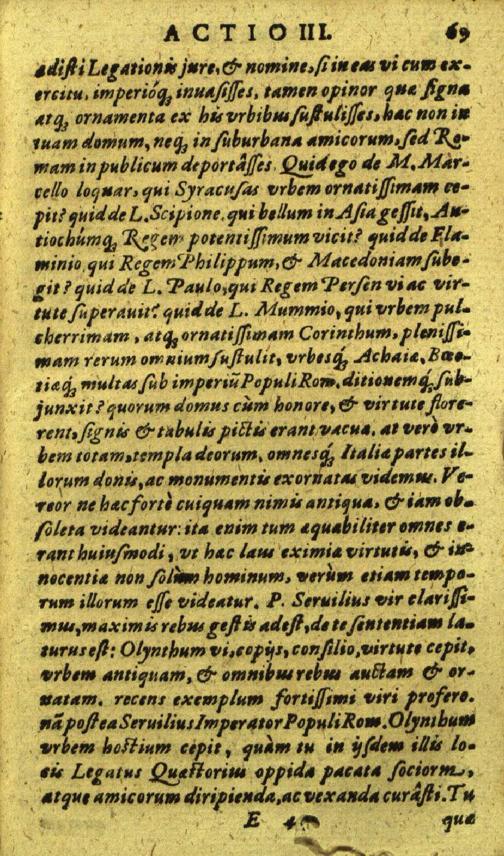 ACTIO III. 69
adisti Legationis jure, & nomine, si in eas vi cum ex-
ercitu, imperióq; inuasisses, tamen opinor quæ signa
atq; ornamenta ex his vrbibus sustulisses, hæc non in
tuam domum, neq; in suburbana amicorum, sed Ro-
mam in publicum deportâsses. Quid ego de M. Mar-
cello loquar, qui Syracusas vrbem ornatissimam ce-
pit? quid de L. Scipione, qui bellum in Asia gessit, An-
tiochúmq; Regem potentissimum vicit? quid de Fla-
minio, qui Regem Philippum, & Macedoniam sube-
git? quid de L. Paulo, qui Regem Persen vi ac vir-
tute superauit? quid de L. Mummio, qui vrbem pul-
cherrimam, atq; ornatissimam Corinthum, plenissi-
mam rerum omnium sustulit, vrbesq; Achaiæ, Bœo-
tiæq; multas sub imperiũ Populi Rom. ditionemq; sub-
junxit? quorum domus cùm honore, & virtute flore-
rent, signis & tabulis pictis erant vacuæ. at verò vr-
bem totam, templa deorum, omnesq; Italiæ partes il-
lorum donis, ac monumentis exornatas videmus. Ve-
reor ne hæc fortè cuiquam nimis antiqua, & iam ob-
soleta videantur: ita enim tum æquabiliter omnes e-
rant huiusmodi, vt hæc laus eximiæ virtutis, & in-
nocentiæ non solùm hominum, verùm etiam tempo-
rum illorum esse videatur. P. Seruilius vir clarissi-
mus, maximis rebus gestis adest, de te sententiam la-
turus est: Olynthum vi, copijs, consilio, virtute cepit,
vrbem antiquam, & omnibus rebus auctam & or-
natam. recens exemplum fortissimi viri profero.
nã postea Seruilius Imperator Populi Rom. Olynthum
vrbem hostium cepit, quàm tu in ijsdem illis lo-
cis Legatus Quæstorius oppida pacata sociorum,
atque amicorum diripienda, ac vexanda curâsti. Tu
E 4 quæ